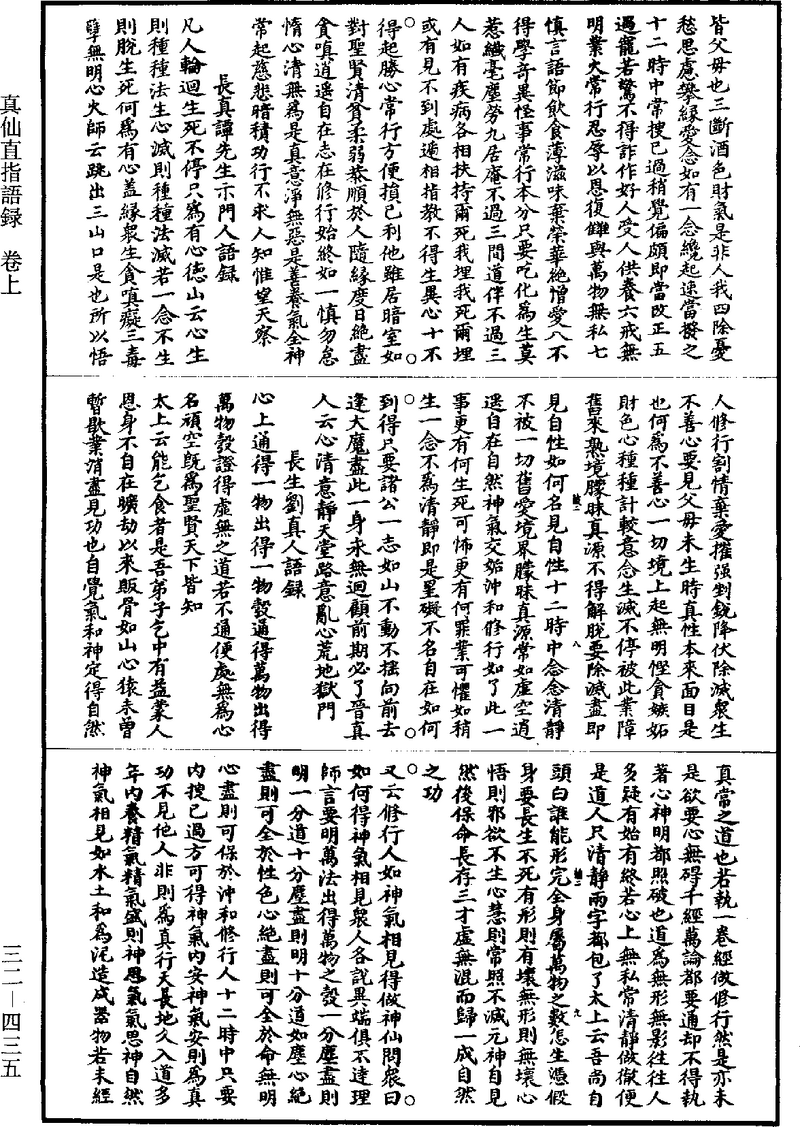 皆父母也三斷酒色財氣是非人我四除憂
愁思慮攀緣愛念如有一念纔起速當撥之
十二時中常搜己過稍覺偏頗即當改正五
遇寵若驚不得詐作好人受人供養六戒無
明業火常行忍辱以恩復讎與萬物無私七
慎言語節飲食薄滋味棄榮華絕憎愛八不
得學奇異怪事常行本分只要吃化為生莫
惹纖毫塵勞九居庵不過三間道伴不過三
人如有疾病各相扶持爾死我埋我死爾埋
或有見不到處遞相指教不得生異心十不
得起勝心常行方便損己利他雖居暗室如
對聖賢清貧柔弱恭順於人隨緣度日絕盡
貪嗔逍遥自在志在修行始終如一慎勿怠
惰心清無為是真意淨無惡是善養氣全神
常起慈悲暗積功行不求人知惟望天察
長真譚先生示門人語録
凡人輪迴生死不停只為有心德山云心生
則種種法生心滅則種種法滅若一念不生
則脫生死何為有心蓋緣衆生貪嗔癡三毒
孽無明心火師云跳出三山口是也所以悟
人修行割情棄愛摧强剉銳降伏除滅衆生
不善心要見父母未生時真性本來面目是
也何為不善心一切境上起無明慳貪嫉妬
財色心種種計較意念生滅不停被此業障
舊來熟境朦昧真源不得解脫要除滅盡即
見自性如何名見自性十二時中念念清靜
不被一切舊愛境界朦昧真源常如虛空逍
遥自在自然神氣交姤沖和修行如了此一
事更有何生死可怖更有何罪業可懼如稍
生一念不為清靜即是罣礙不名自在如何
到得只要諸公一志如山不動不摇向前去
逢大魔盡此一身永無迴顧前期必了晉真
人云心清意靜天堂路意亂心荒地獄門
長生劉真人語録
心上通得一物出得一物殼通得萬物出得
萬物殼證得虛無之道若不通便處無為心
名頑空既為聖賢天下皆知
太上云能乞食者是吾弟子乞中有益業人
恩身不自在曠劫以來販骨如山心猿未曾
暫歇業消盡見功也自覺氣和神定得自然
真常之道也若執一卷經做修行然是亦未
是欲要心無碍千經萬論都要通却不得執
著心神明都照破也道為無形無影往往人
多疑有始有終若心上無私常清靜做徹便
是道人尺清靜兩字都包了太上云吾尚白
頭白誰能形完全身屬萬物之數怎生憑假
身要長生不死有形則有壞無形則無壞心
悟則邪欲不生心慧則常照不滅元神自見
然後保命長存三才虛無混而歸一成自然
之功
又云修行人如神氣相見得做神仙問衆曰
如何得神氣相見衆人各說異端俱不達理
師言要明萬法出得萬物之殼一分塵盡則
明一分道十分塵盡則明十分道如塵心絕
盡則可全於性色心絕盡則可全於命無明
心盡則可保於沖和修行人十二時中只要
内搜己過方可得神氣内安神氣安則為真
功不見他人非則為真行天長地久入道多
年内養精氣精氣盛則神思氣氣思神自然
神氣相見如水土和為泥造成器物若未經
真仙直指語録　卷上
三二—四三五
八
九